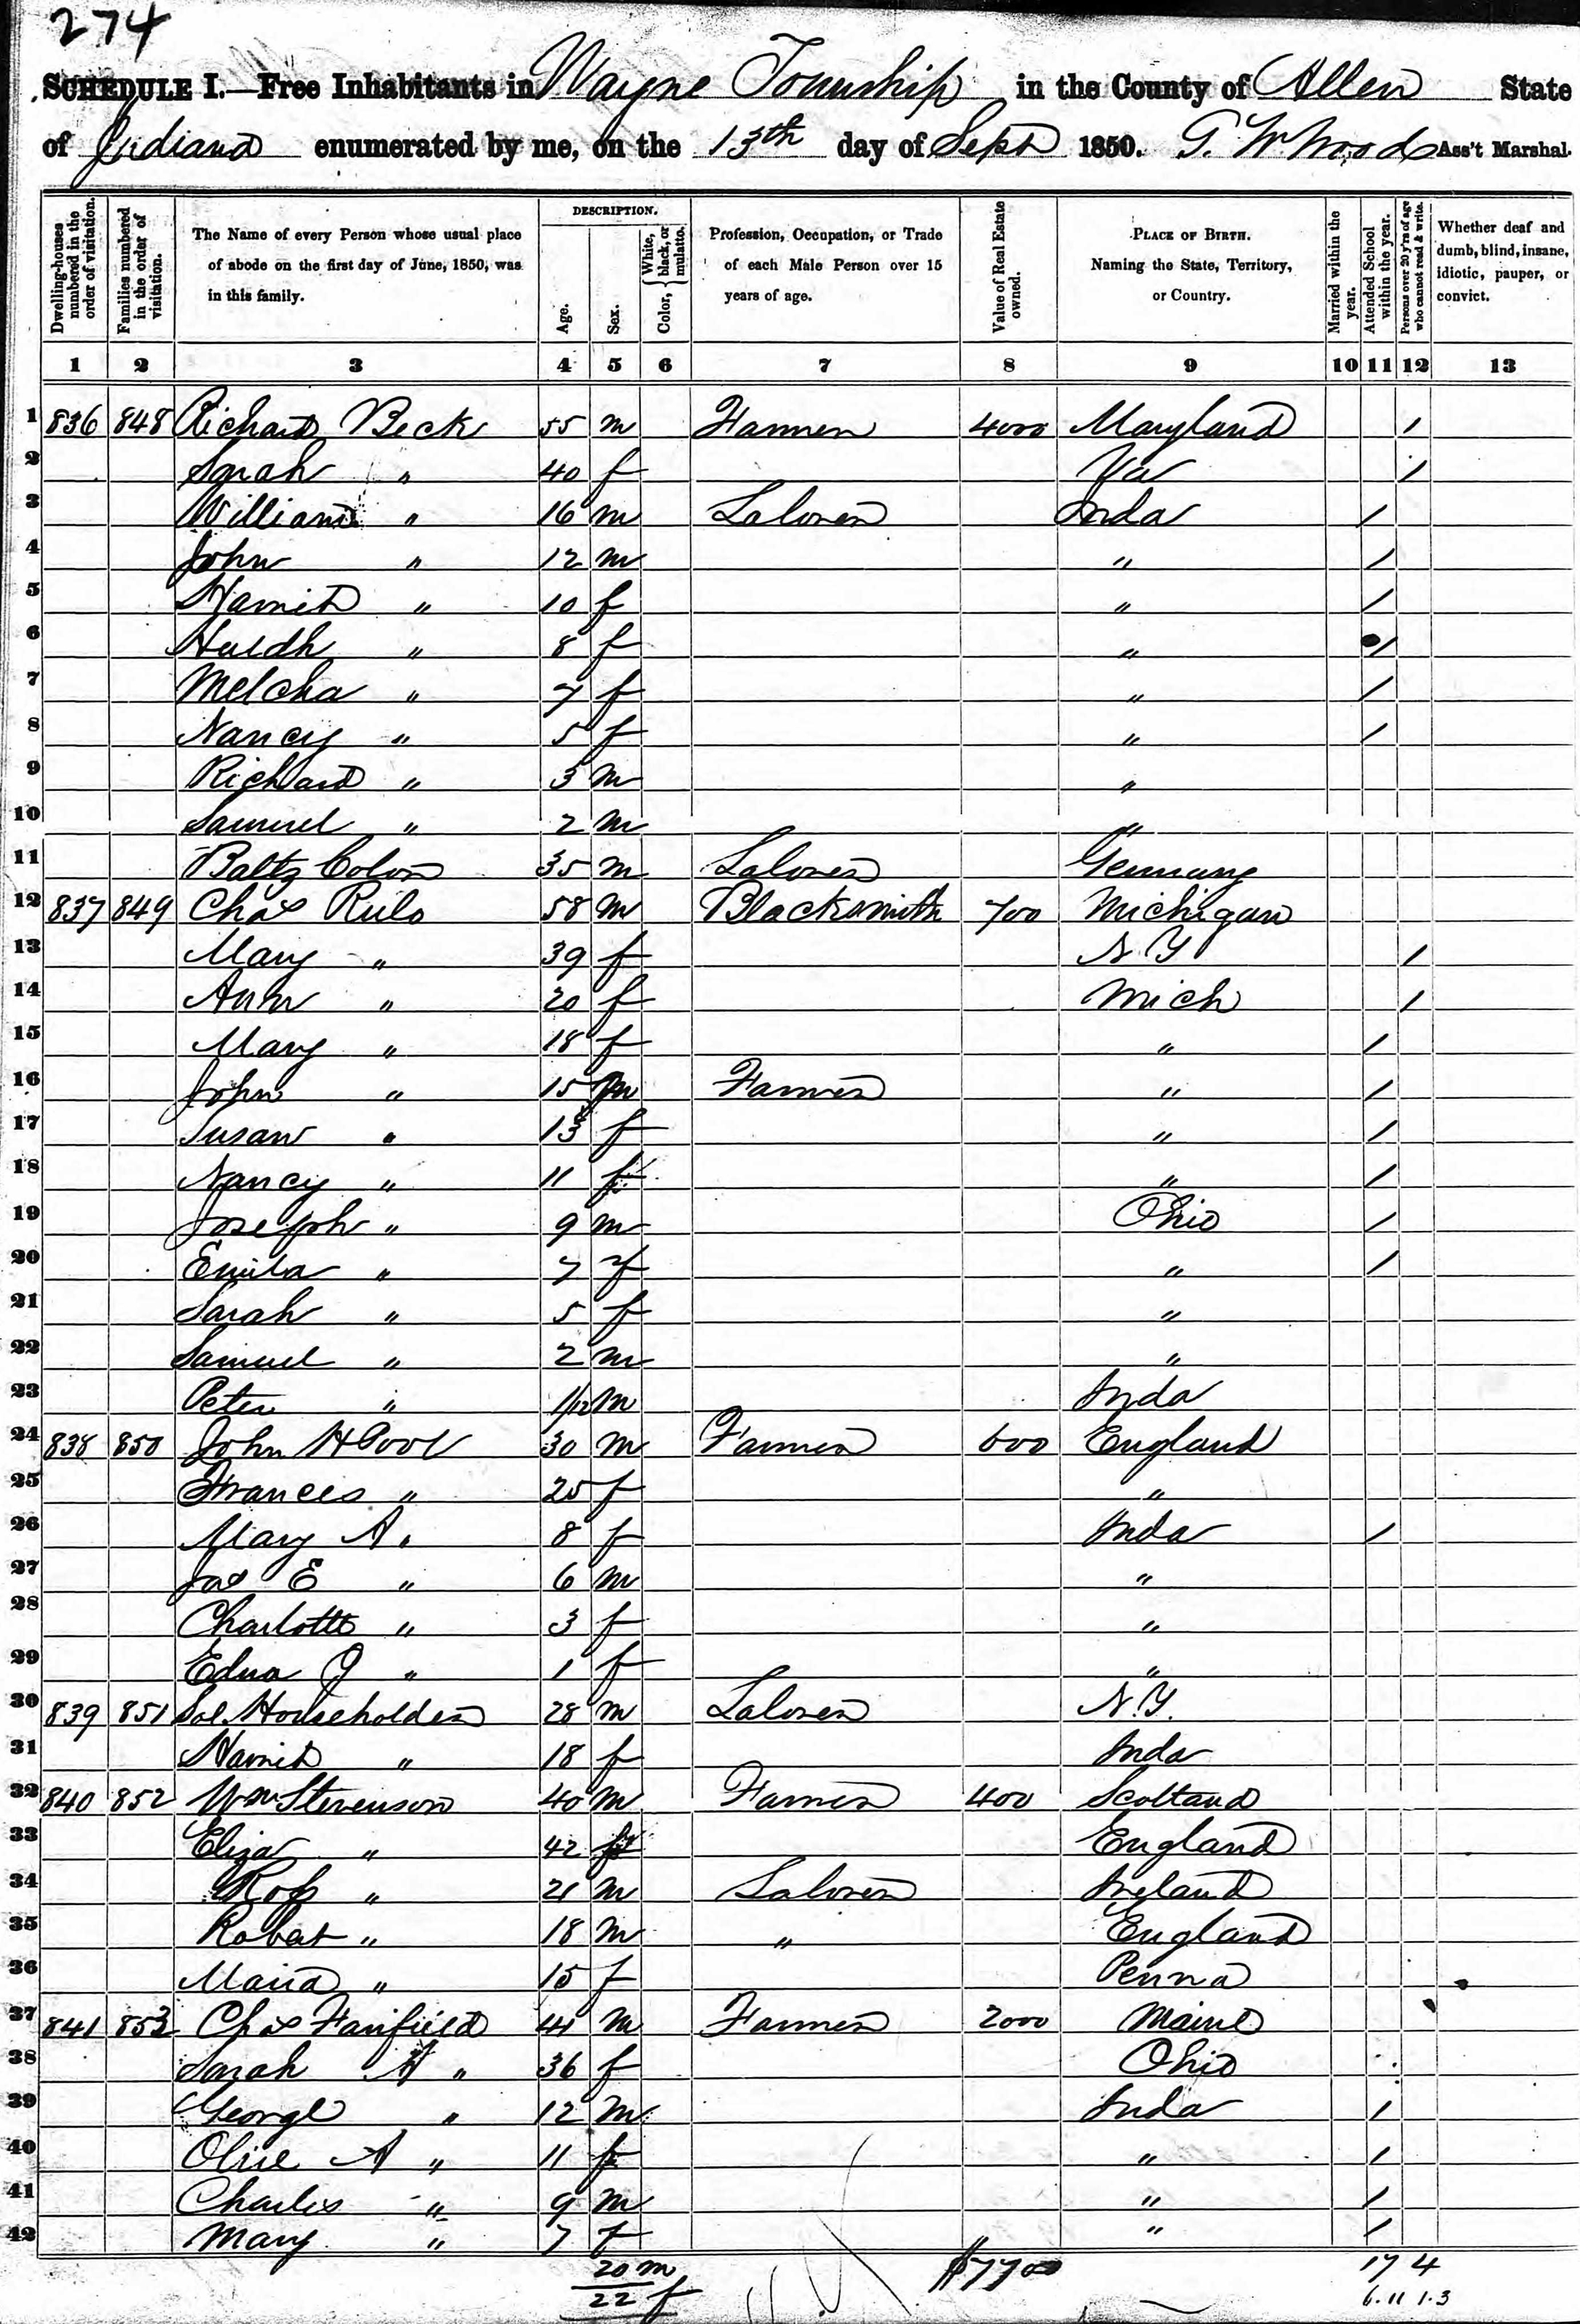 274
SCHEDULE I.—Free Inhabitants in Wayne Township in the County of Allen State
of Indiana enumerated by me, on the 13th day of Sept 1850. T. W Wood Ass't Marshal.
Dwelling-houses numbered in the order of visitation. Families numbered in the order of visitation. The Name of every Person whose usual place of abode on the first day of June, 1850, was in this family. DESCRIPTION. Age. Sex. Color, { White, black, or mulatto. Profession, Occupation, or Trade of each Male Person over 15 years of age. Value of Real Estate owned. PLACE OF BIRTH. Naming the State, Territory, or Country. Married within the year. Attended School within the year. Persons over 20 y'rs of age who cannot read & write. Whether deaf and dumb, blind, insane, idiotic, pauper, or convict.
1 2 3 4 5 6 7 8 9 10 11 12 13
1 836 848 Richard Beck 55 m Farmer 4000 Maryland /
2 Sarah " 40 f Va /
3 William " 16 m Laborer Inda /
4 John " 12 m " /
5 Harriet " 10 f " /
6 Huldh " 8 f " /
7 Melcha " 7 f " /
8 Nancy " 5 f " /
9 Richard " 3 m "
10 Samuel " 2 m "
11 Baltz Colon 35 m Laborer Germany
12 837 849 Chas Rulo 58 m Blacksmith 700 Michigan
13 Mary " 39 f N Y /
14 Ann " 20 f Mich /
15 Mary " 18 f " /
16 John " 15 m Farmer " /
17 Susan " 13 f " /
18 Nancy " 11 f " /
19 Joseph " 9 m Ohio /
20 Emila " 7 f " /
21 Sarah " 5 f "
22 Samuel " 2 m "
23 Peter " 1/12 m Inda
24 838 850 John H Pool 30 m Farmer 600 England
25 Frances " 25 f "
26 Mary A " 8 f Inda /
27 Jas E " 6 m "
28 Charlotte " 3 f "
29 Edna J " 1 f "
30 839 851 Sol. Householder 28 m Laborer N.Y.
31 Harriet " 18 f Inda
32 840 852 Wm Stevenson 40 m Farmer 400 Scotland
33 Eliza " 42 f England
34 Ross " 21 m Laborer Ireland
35 Robert " 18 m " England
36 Maria " 15 f Penna
37 841 853 Chas Fairfield 41 m Farmer 2000 Maine
38 Sarah A " 36 f Ohio
39 George " 12 m Inda /
40 Olive A " 11 f " /
41 Charles " 9 m " /
42 Mary " 7 f " /
20 m $7700 17 4
22 f 6.11 1.3